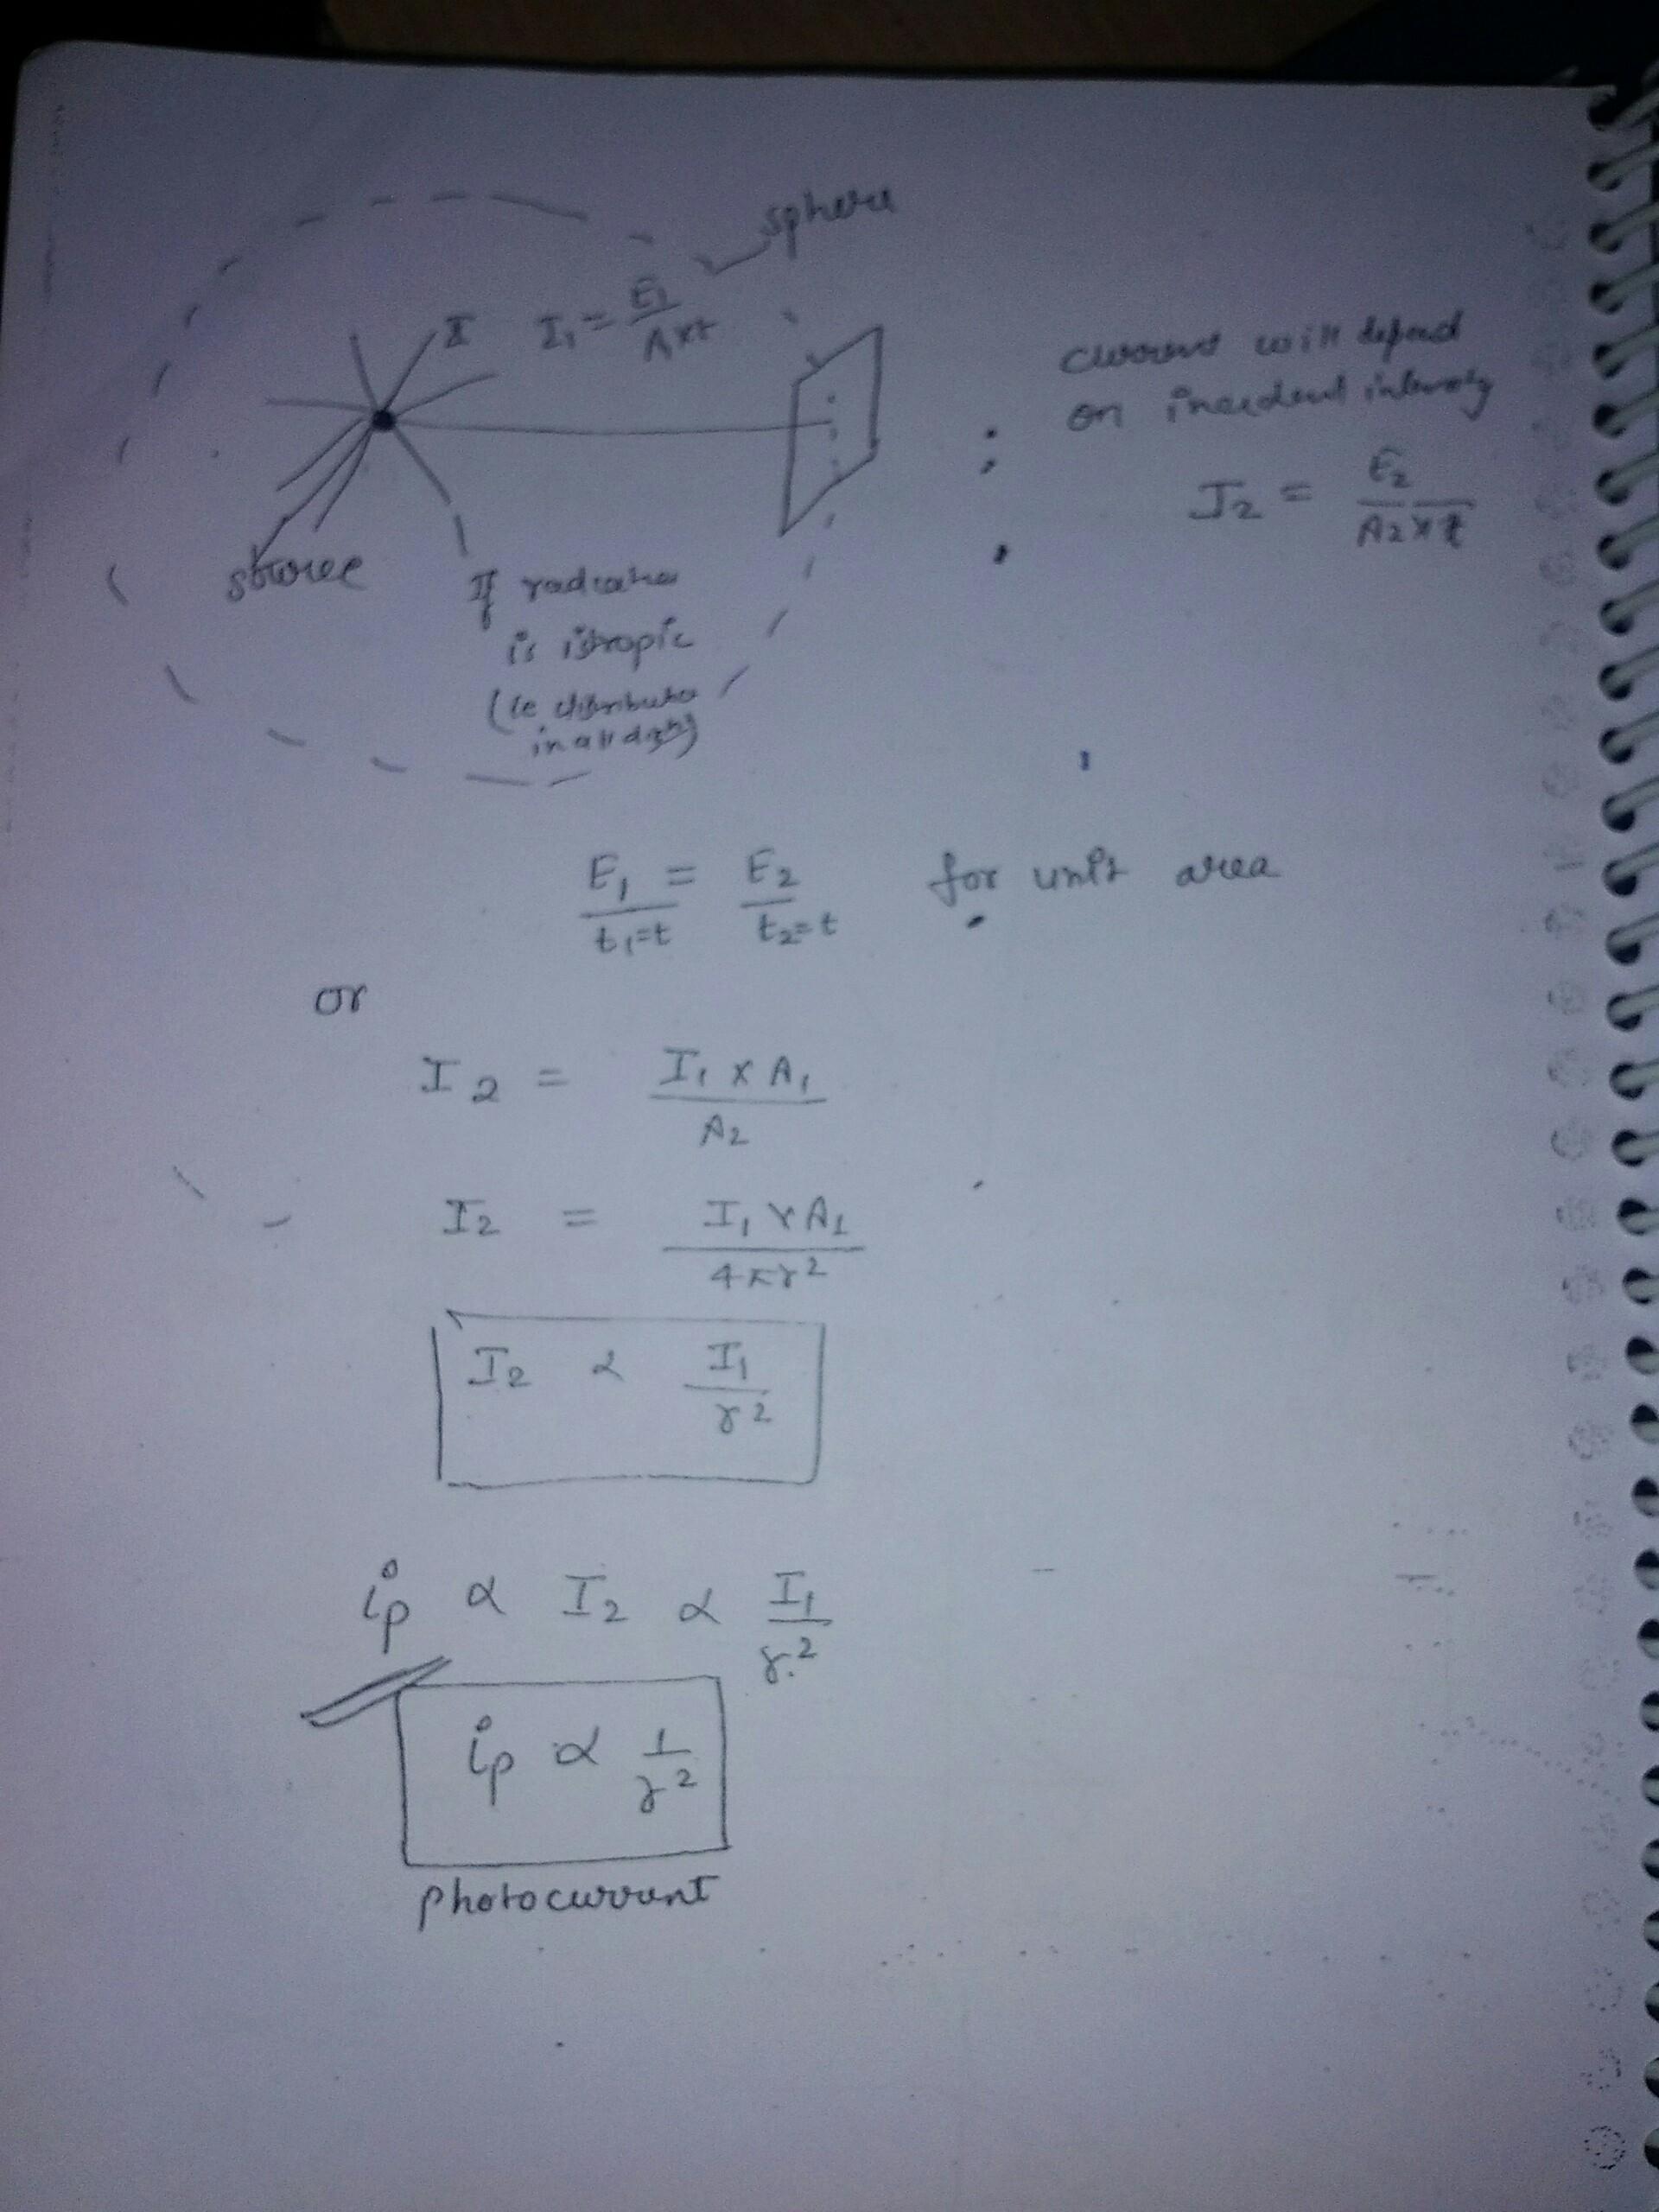 sphere
I I₁ = E₁/A×t
source
If radiation
is istropic
(ie distributes
in all dirn)
current will depend
on incident intensity
I₂ = E₂/A₂×t
E₁/t₁=t = E₂/t₂=t for unit area
or
I₂ = I₁ × A₁/A₂
I₂ = I₁ × A₁/4πr²
I₂ ∝ I₁/r²
ip ∝ I₂ ∝ I₁/r²
ip ∝ 1/r²
photocurrent